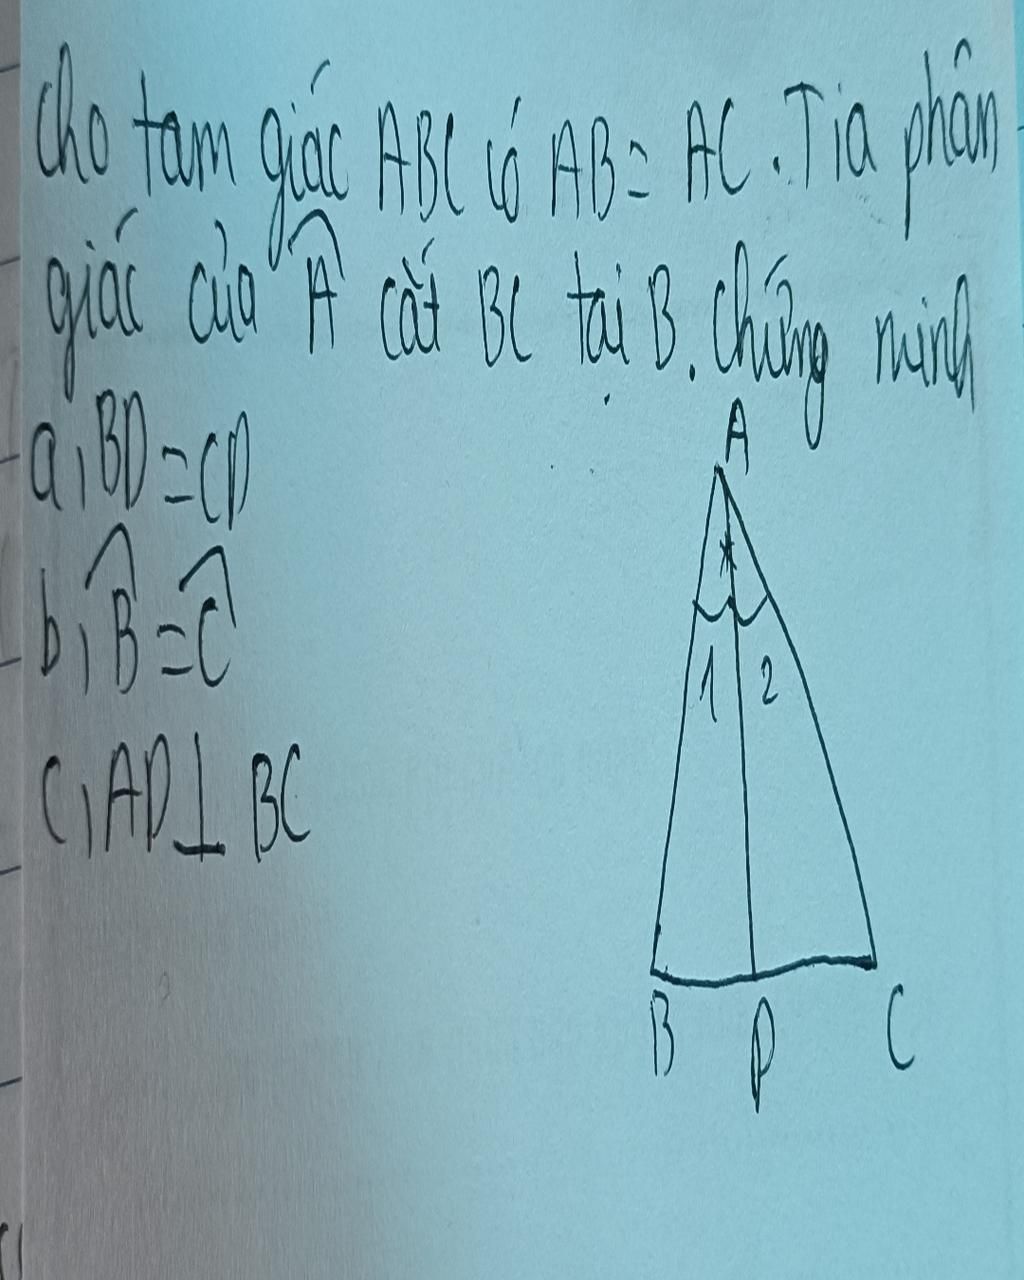 Cho tam giác ABC có AB = AC. Tia phân
giác của Â cắt BC tại B. Chứng minh
a, BD = CD
b, B̂ = Ĉ
c, AD ⊥ BC
A
1 2
B D C